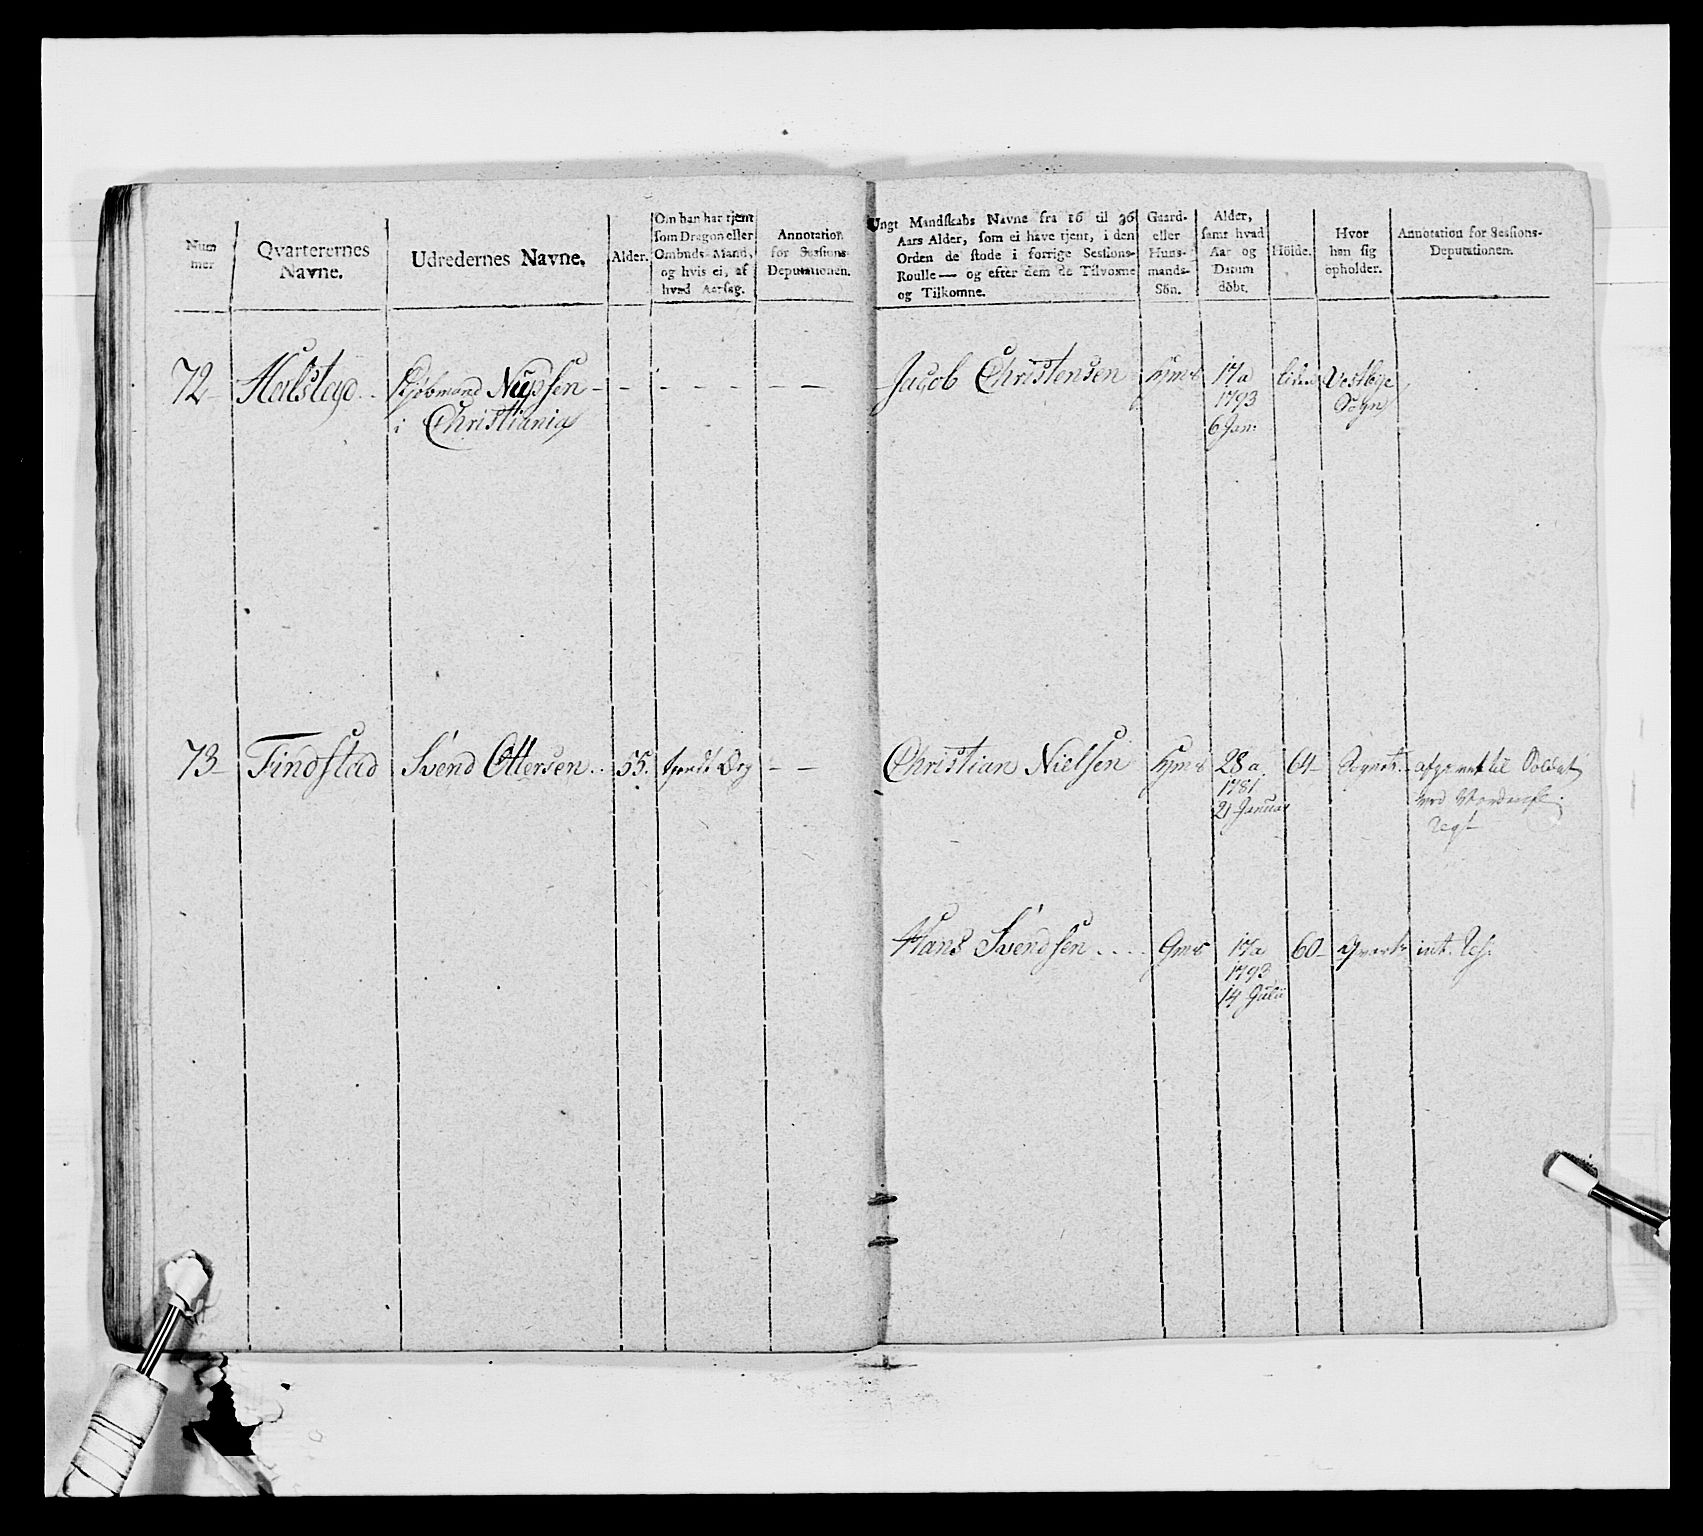 Num
mer
Qvarterernes
Navne.
Udredernes Navne.
Alder.
Om han har tjent
som Dragon eller
Ombuds-Mand,
og hvis ei, af
hvad Aarsag.
Annotation
for Sessions-
Deputationen.
Ungt Mandskabs Navne fra 16 til 36
Aars Alder, som ei have tjent, i den
Orden de stode i forrige Sessions-
Roulle — og efter dem de Tilvoxne
og Tilkomne.
Gaard-
eller
Huus-
mands-
Sön.
Alder,
samt hvad
Aar og
Datum
döbt.
Höide.
Hvor
han sig
opholder.
Annotation for Sessions-
Deputationen.
72 Halstad Kjøbmand Nudsen - - - - - - - Jacob Christensen 17 a liden Vestbye
i Christiania 1793 Sogn
6 Jan:
73 Tindstad Svend Ottersen 55. tjendt - - Christian Nielsen 28 a 64 afgivet til Soldat
1781 ved
21 Januar Regt
Hans Svendsen .... Gms 17 a 60 qvart:
1793
14 Julii